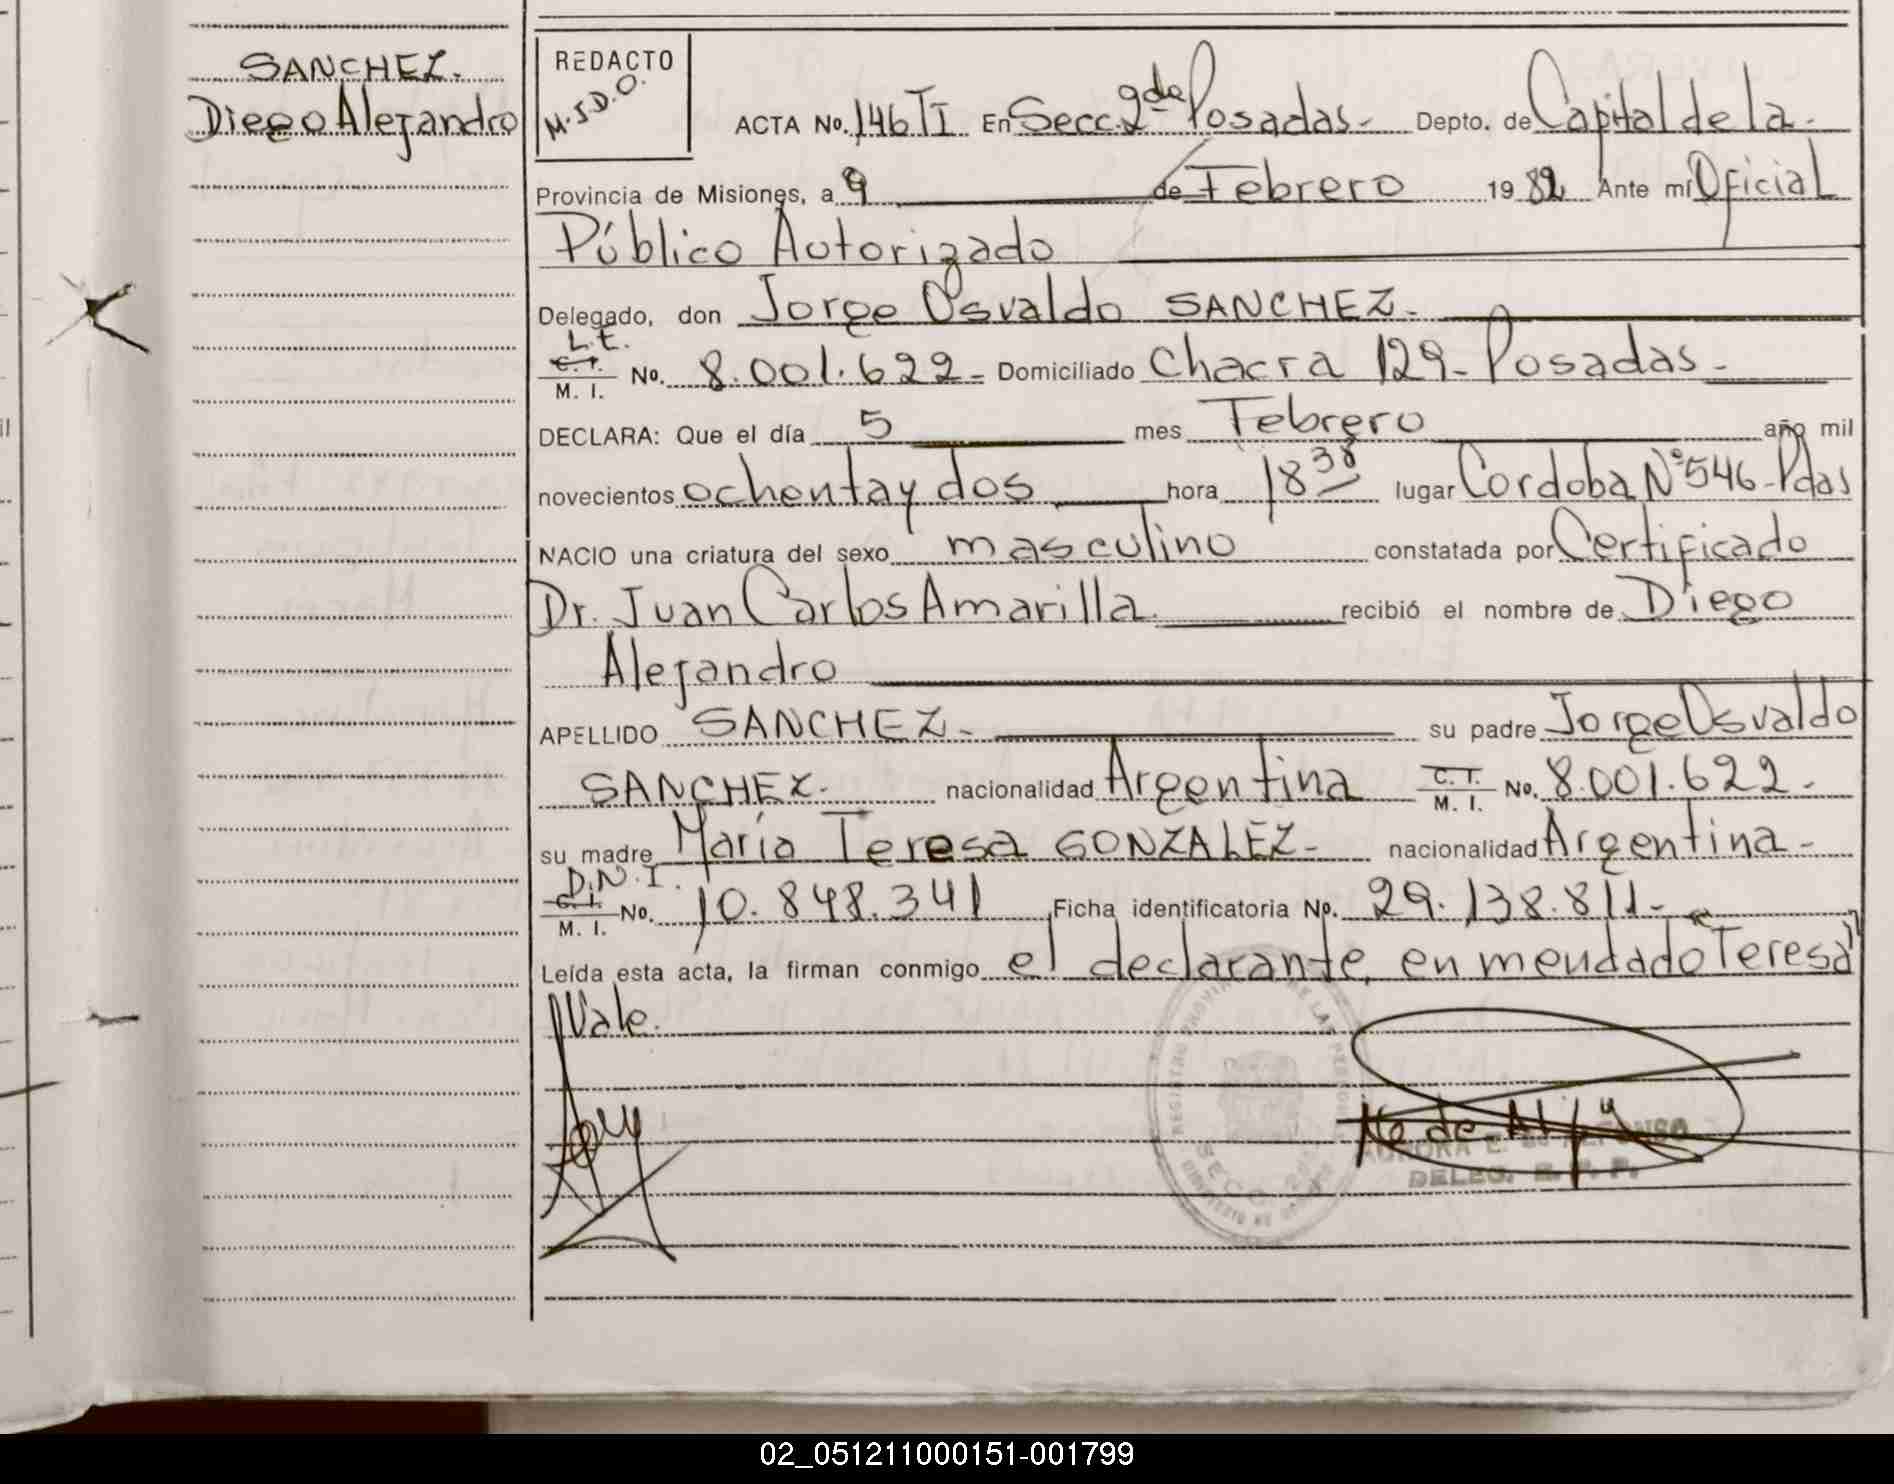 SANCHEZ.
Diego Alejandro
REDACTO
M.S.D.O.
ACTA No. 146 TI En Secc. 2da Posadas- Depto. de Capital de la-
Provincia de Misiones, a 9 de Febrero 1982 Ante mí Oficial
Público Autorizado
Delegado, don Jorge Osvaldo SANCHEZ-
L.E.
C.I.
M. I. No. 8.001.622- Domiciliado Chacra 129- Posadas-
DECLARA: Que el día 5 mes Febrero año mil
novecientos ochenta y dos hora 18 38 lugar Cordoba N° 546-Pdas
NACIO una criatura del sexo masculino constatada por Certificado
Dr. Juan Carlos Amarilla recibió el nombre de Diego
Alejandro
APELLIDO SANCHEZ- su padre Jorge Osvaldo
SANCHEZ. nacionalidad Argentina C.I. M. I. No. 8.001.622-
su madre María Teresa GONZALEZ- nacionalidad Argentina-
D.N.I.
C.I.
M. I. No. 10.848.341 Ficha identificatoria No. 29.138.811-
Leída esta acta, la firman conmigo el declarante, enmendado "Teresa"
Vale.
REGISTRO PROVINCIAL DE LAS PERSONAS
SECC. 2da
AURORA E. de ALFONSO
DELEG. R. P. P.
02_051211000151-001799